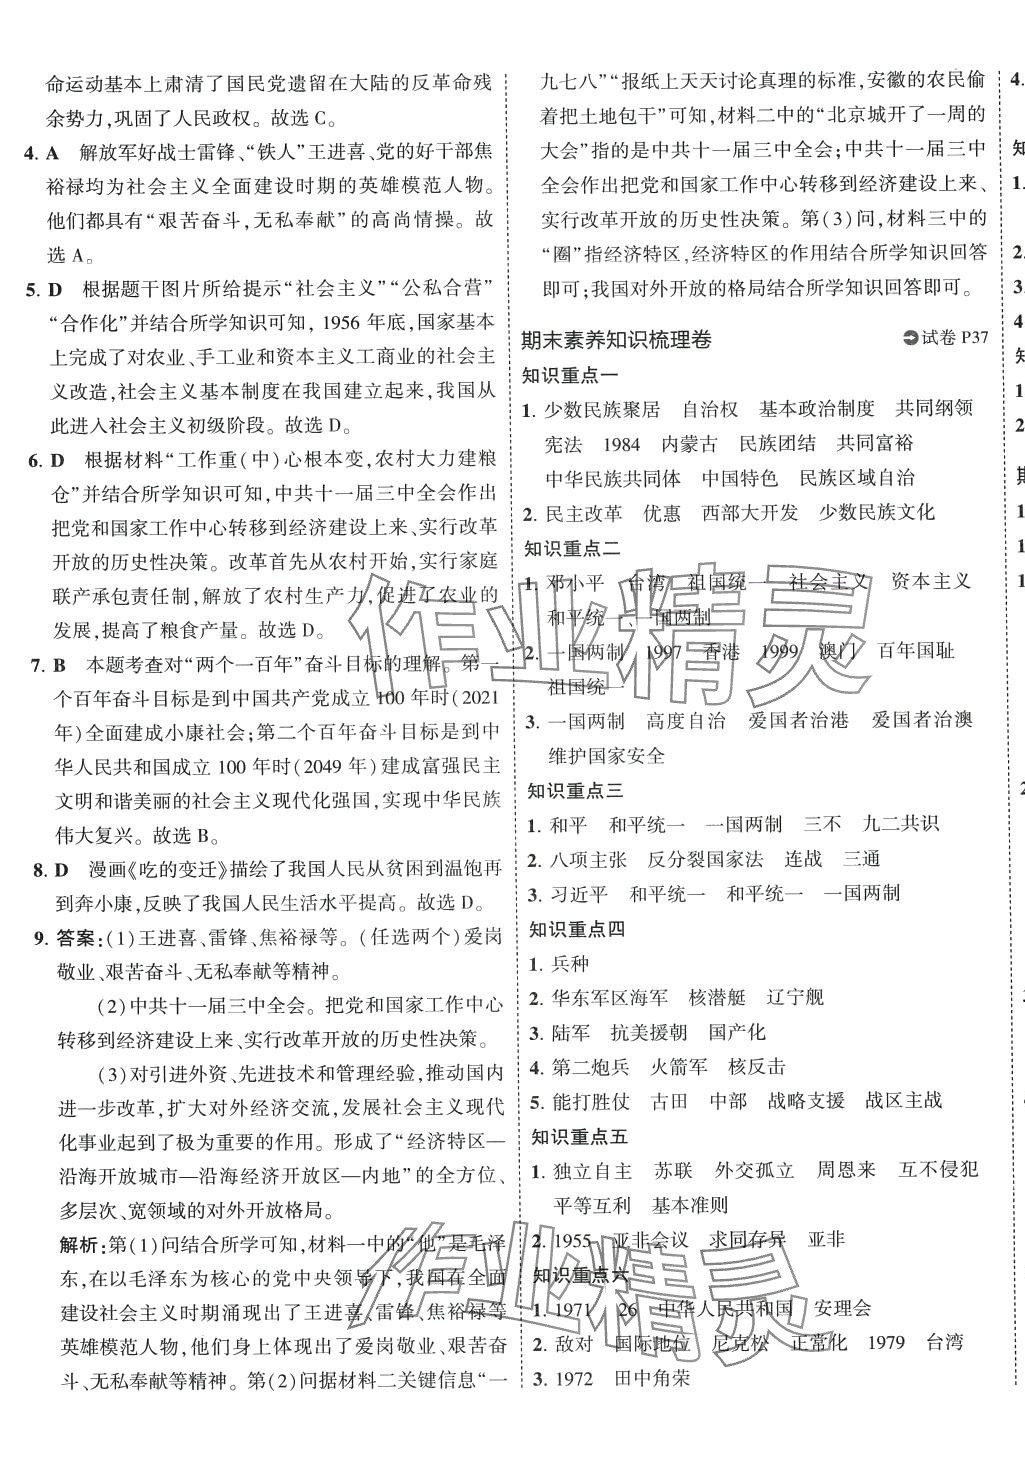 命运动基本上肃清了国民党遗留在大陆的反革命残
余势力,巩固了人民政权。故选 C。
4. A 解放军好战士雷锋、“铁人”王进喜、党的好干部焦
裕禄均为社会主义全面建设时期的英雄模范人物。
他们都具有“艰苦奋斗,无私奉献”的高尚情操。故
选 A。
5. D 根据题干图片所给提示“社会主义”“公私合营”
“合作化”并结合所学知识可知, 1956 年底,国家基本
上完成了对农业、手工业和资本主义工商业的社会主
义改造,社会主义基本制度在我国建立起来,我国从
此进入社会主义初级阶段。故选 D。
6. D 根据材料“工作重(中)心根本变,农村大力建粮
仓”并结合所学知识可知,中共十一届三中全会作出
把党和国家工作中心转移到经济建设上来、实行改革
开放的历史性决策。改革首先从农村开始,实行家庭
联产承包责任制,解放了农村生产力,促进了农业的
发展,提高了粮食产量。故选 D。
7. B 本题考查对“两个一百年”奋斗目标的理解。第一
个百年奋斗目标是到中国共产党成立 100 年时(2021
年)全面建成小康社会;第二个百年奋斗目标是到中
华人民共和国成立 100 年时(2049 年)建成富强民主
文明和谐美丽的社会主义现代化强国,实现中华民族
伟大复兴。故选 B。
8. D 漫画《吃的变迁》描绘了我国人民从贫困到温饱再
到奔小康,反映了我国人民生活水平提高。故选 D。
9. 答案:(1)王进喜、雷锋、焦裕禄等。(任选两个)爱岗
敬业、艰苦奋斗、无私奉献等精神。
(2)中共十一届三中全会。把党和国家工作中心
转移到经济建设上来、实行改革开放的历史性决策。
(3)对引进外资、先进技术和管理经验,推动国内
进一步改革,扩大对外经济交流,发展社会主义现代
化事业起到了极为重要的作用。形成了“经济特区—
沿海开放城市—沿海经济开放区—内地”的全方位、
多层次、宽领域的对外开放格局。
解析:第(1)问结合所学可知,材料一中的“他”是毛泽
东,在以毛泽东为核心的党中央领导下,我国在全面
建设社会主义时期涌现出了王进喜、雷锋、焦裕禄等
英雄模范人物,他们身上体现出了爱岗敬业、艰苦奋
斗、无私奉献等精神。第(2)问据材料二关键信息“一
九七八”“报纸上天天讨论真理的标准,安徽的农民偷
着把土地包干”可知,材料二中的“北京城开了一周的
大会”指的是中共十一届三中全会;中共十一届三中
全会作出把党和国家工作中心转移到经济建设上来、
实行改革开放的历史性决策。第(3)问,材料三中的
“圈”指经济特区,经济特区的作用结合所学知识回答
即可;我国对外开放的格局结合所学知识回答即可。
期末素养知识梳理卷 试卷 P37
知识重点一
1. 少数民族聚居 自治权 基本政治制度 共同纲领
宪法 1984 内蒙古 民族团结 共同富裕
中华民族共同体 中国特色 民族区域自治
2. 民主改革 优惠 西部大开发 少数民族文化
知识重点二
1. 邓小平 台湾 祖国统一 社会主义 资本主义
和平统一、一国两制
2. 一国两制 1997 香港 1999 澳门 百年国耻
祖国统一
3. 一国两制 高度自治 爱国者治港 爱国者治澳
维护国家安全
知识重点三
1. 和平 和平统一 一国两制 三不 九二共识
2. 八项主张 反分裂国家法 连战 三通
3. 习近平 和平统一 和平统一 一国两制
知识重点四
1. 兵种
2. 华东军区海军 核潜艇 辽宁舰
3. 陆军 抗美援朝 国产化
4. 第二炮兵 火箭军 核反击
5. 能打胜仗 古田 中部 战略支援 战区主战
知识重点五
1. 独立自主 苏联 外交孤立 周恩来 互不侵犯
平等互利 基本准则
2. 1955 亚非会议 求同存异 亚非
知识重点六
1. 1971 26 中华人民共和国 安理会
2. 敌对 国际地位 尼克松 正常化 1979 台湾
3. 1972 田中角荣
4.
知
1.
2.
3.
4
知
1
2
期
1
1
1
2
作业精灵
作业精灵